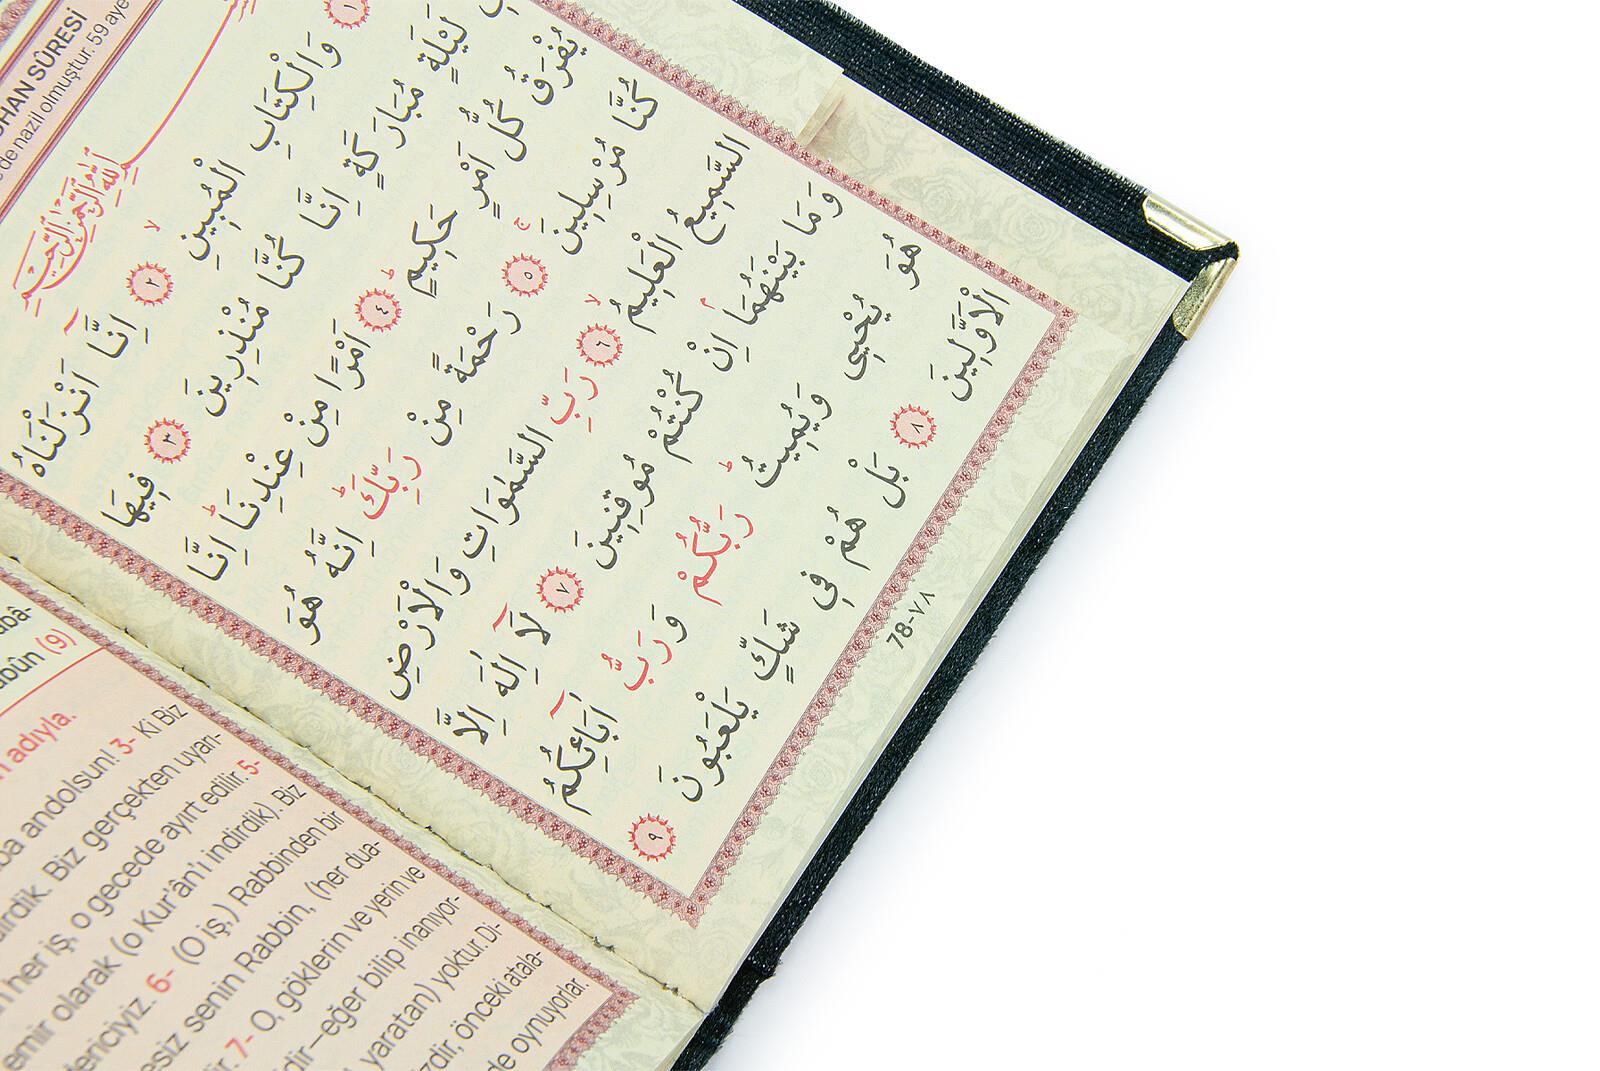 HAN SÛRESİ
de nazil olmuştur. 59 aye
بِسْمِ اللّٰهِ الرَّحْمٰنِ الرَّحِيمِ
١ وَالْكِتَابِ الْمُبِينِۙ ٢ اِنَّٓا اَنْزَلْنَاهُ
لَيْلَةٍ مُبَارَكَةٍ اِنَّا كُنَّا مُنْذِرِينَ ٣ فِيهَا
يُفْرَقُ كُلُّ اَمْرٍ حَكِيمٍۙ ٤ اَمْرًا مِنْ عِنْدِنَاۜ اِنَّا
كُنَّا مُرْسِلِينَۚ ٥ رَحْمَةً مِنْ رَبِّكَۜ اِنَّهُ هُوَ
السَّمِيعُ الْعَلِيمُۙ ٦ رَبِّ السَّمٰوَاتِ وَالْاَرْضِ
وَمَا بَيْنَهُمَاۢ اِنْ كُنْتُمْ مُوقِنِينَ ٧ لَٓا اِلٰهَ اِلَّا
هُوَ يُحْيِي وَيُمِيتُۜ رَبُّكُمْ وَرَبُّ اٰبَٓائِكُمُ
الْاَوَّلِينَ ٨ بَلْ هُمْ فِي شَكٍّ يَلْعَبُونَ ٩
78-٧٨
abâ-
abûn (9)
adıyla.
andolsun! 3- Ki Biz
dirdik. Biz gerçekten uyarı-
her iş, o gecede ayırt edilir. 5-
emir olarak (o Kur'ân'ı indirdik). Biz
dericiyiz. 6- (O iş,) Rabbinden bir
esiz senin Rabbin, (her dua-
ir. 7- O, göklerin ve yerin ve
dir –eğer bilip inanıyor-
yaratan) yoktur. Di-
izdir, önceki atala-
de oynuyorlar.